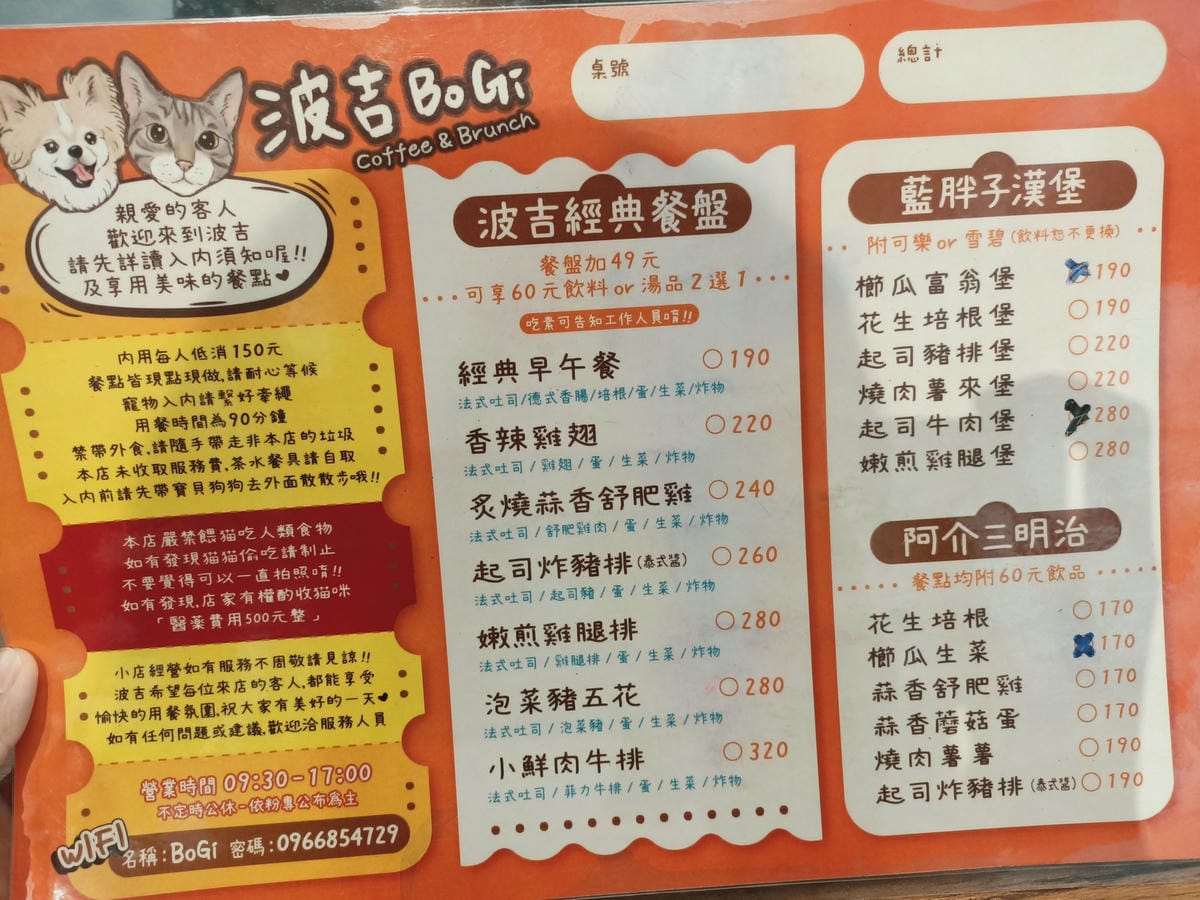 波吉BoGi
Coffee & Brunch
桌號
總計
親愛的客人
歡迎來到波吉
請先詳讀入內須知喔!!
及享用美味的餐點♥
內用每人低消150元
餐點皆現點現做,請耐心等候
寵物入內請繫好牽繩
用餐時間為90分鐘
禁帶外食,請隨手帶走非本店的垃圾
本店未收取服務費,茶水餐具請自取
入內前請先帶寶貝狗狗去外面散散步哦!!
本店嚴禁餵猫吃人類食物
如有發現猫猫偷吃請制止
不要覺得可以一直拍照唷!!
如有發現,店家有權酌收猫咪
「醫藥費用500元整」
小店經營如有服務不周敬請見諒!!
波吉希望每位來店的客人,都能享受
愉快的用餐氛圍,祝大家有美好的一天♥
如有任何問題或建議,歡迎洽服務人員
營業時間 09:30-17:00
不定時公休-依粉專公布為主
WIFI
名稱:BoGi 密碼:0966854729
波吉經典餐盤
餐盤加49元
可享60元飲料or湯品2選1
吃素可告知工作人員唷!!
經典早午餐 ○190
法式吐司/德式香腸/培根/蛋/生菜/炸物
香辣雞翅 ○220
法式吐司/雞翅/蛋/生菜/炸物
炙燒蒜香舒肥雞 ○240
法式吐司/舒肥雞肉/蛋/生菜/炸物
起司炸豬排(泰式醬) ○260
法式吐司/起司豬/蛋/生菜/炸物
嫩煎雞腿排 ○280
法式吐司/雞腿排/蛋/生菜/炸物
泡菜豬五花 ○280
法式吐司/泡菜豬/蛋/生菜/炸物
小鮮肉牛排 ○320
法式吐司/菲力牛排/蛋/生菜/炸物
藍胖子漢堡
附可樂or雪碧(飲料恕不更換)
櫛瓜富翁堡 190
花生培根堡 ○190
起司豬排堡 ○220
燒肉薯來堡 ○220
起司牛肉堡 280
嫩煎雞腿堡 ○280
阿介三明治
餐點均附60元飲品
花生培根 ○170
櫛瓜生菜 170
蒜香舒肥雞 ○170
蒜香蘑菇蛋 ○170
燒肉薯薯 ○190
起司炸豬排(泰式醬) ○190